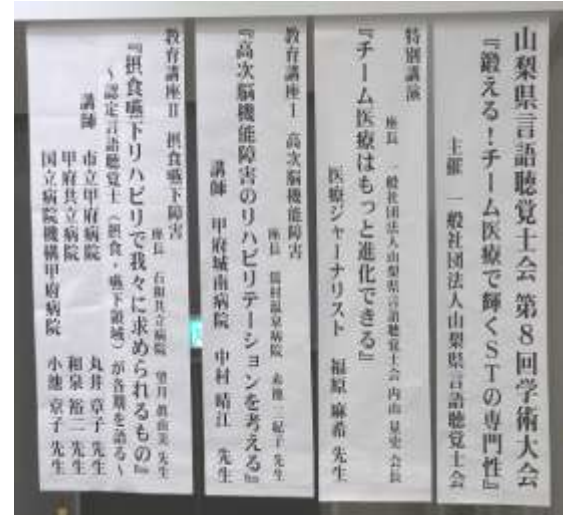 山梨県言語聴覚士会 第8回学術大会
『鍛える!チーム医療で輝くSTの専門性』
主催 一般社団法人山梨県言語聴覚士会
特別講演
座長 一般社団法人山梨県言語聴覚士会 内山 会長
『チーム医療はもっと進化できる』
医療ジャーナリスト 福原 麻希 先生
教育講座Ⅰ 高次脳機能障害
座長 温泉病院 先生
『高次脳機能障害のリハビリテーションを考える』
講師 甲府城南病院 中村 晴江 先生
教育講座Ⅱ 摂食嚥下障害
座長 石和共立病院 望月 眞由美 先生
『摂食嚥下リハビリで我々に求められるもの』
~認定言語聴覚士(摂食・嚥下領域)が各期を語る~
講師 市立甲府病院 丸井 章子 先生
甲府共立病院 和泉 裕二 先生
国立病院機構甲府病院 小池 京子 先生